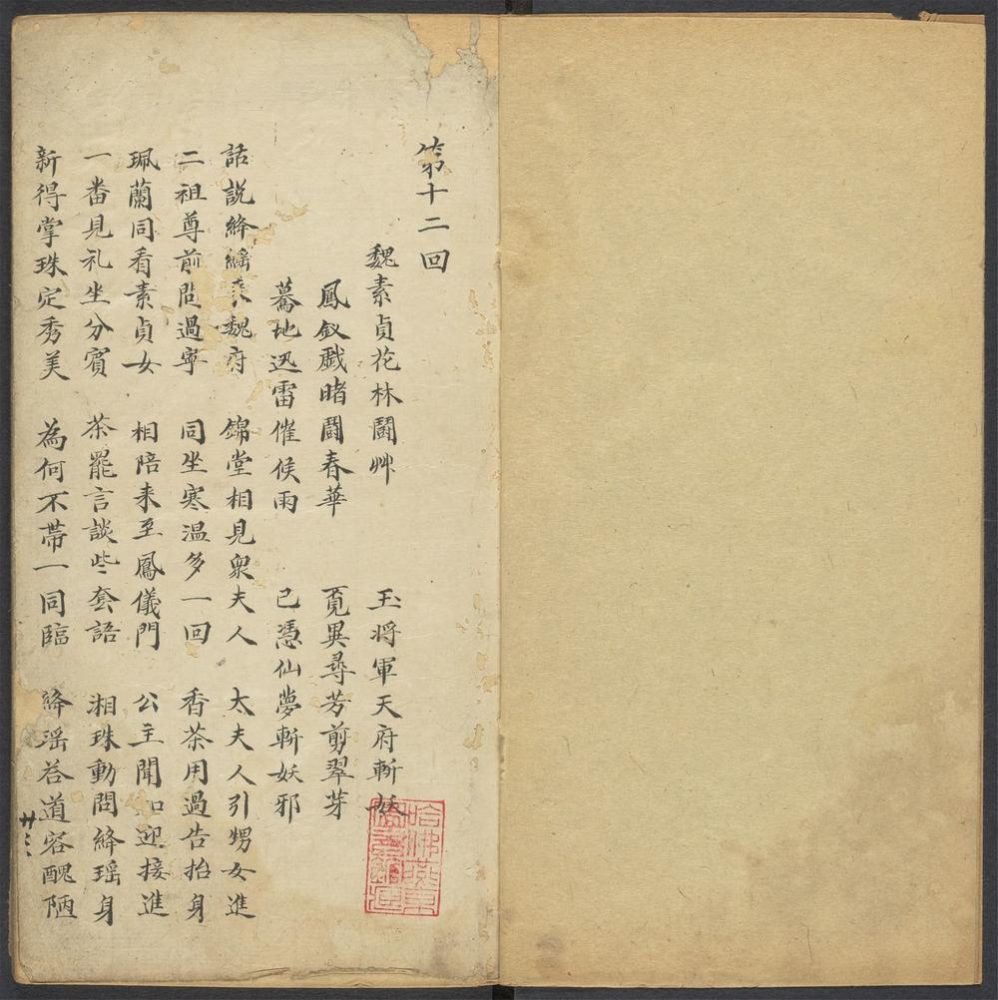 第十二回
魏素貞花林鬪艸 玉将軍天府斬妖
鳳釵戲睹鬪春華 覓異尋芳剪翠芽
驀地迅雷催候雨 已憑仙夢斬妖邪
話説絳綿 魏府 錦堂相見衆夫人 太夫人引甥女進
二祖尊前問過寧 同坐寒温多一回 香茶用過告抬身
珮蘭同看素貞女 相陪来至鳳儀門 公主聞知迎接進
一番見礼坐分賓 茶罷言談些套語 湘珠動問絳瑶身
新得掌珠定秀美 為何不帶一同臨 絳瑶荅道容醜陋
廿三
哈佛燕京
圖書館